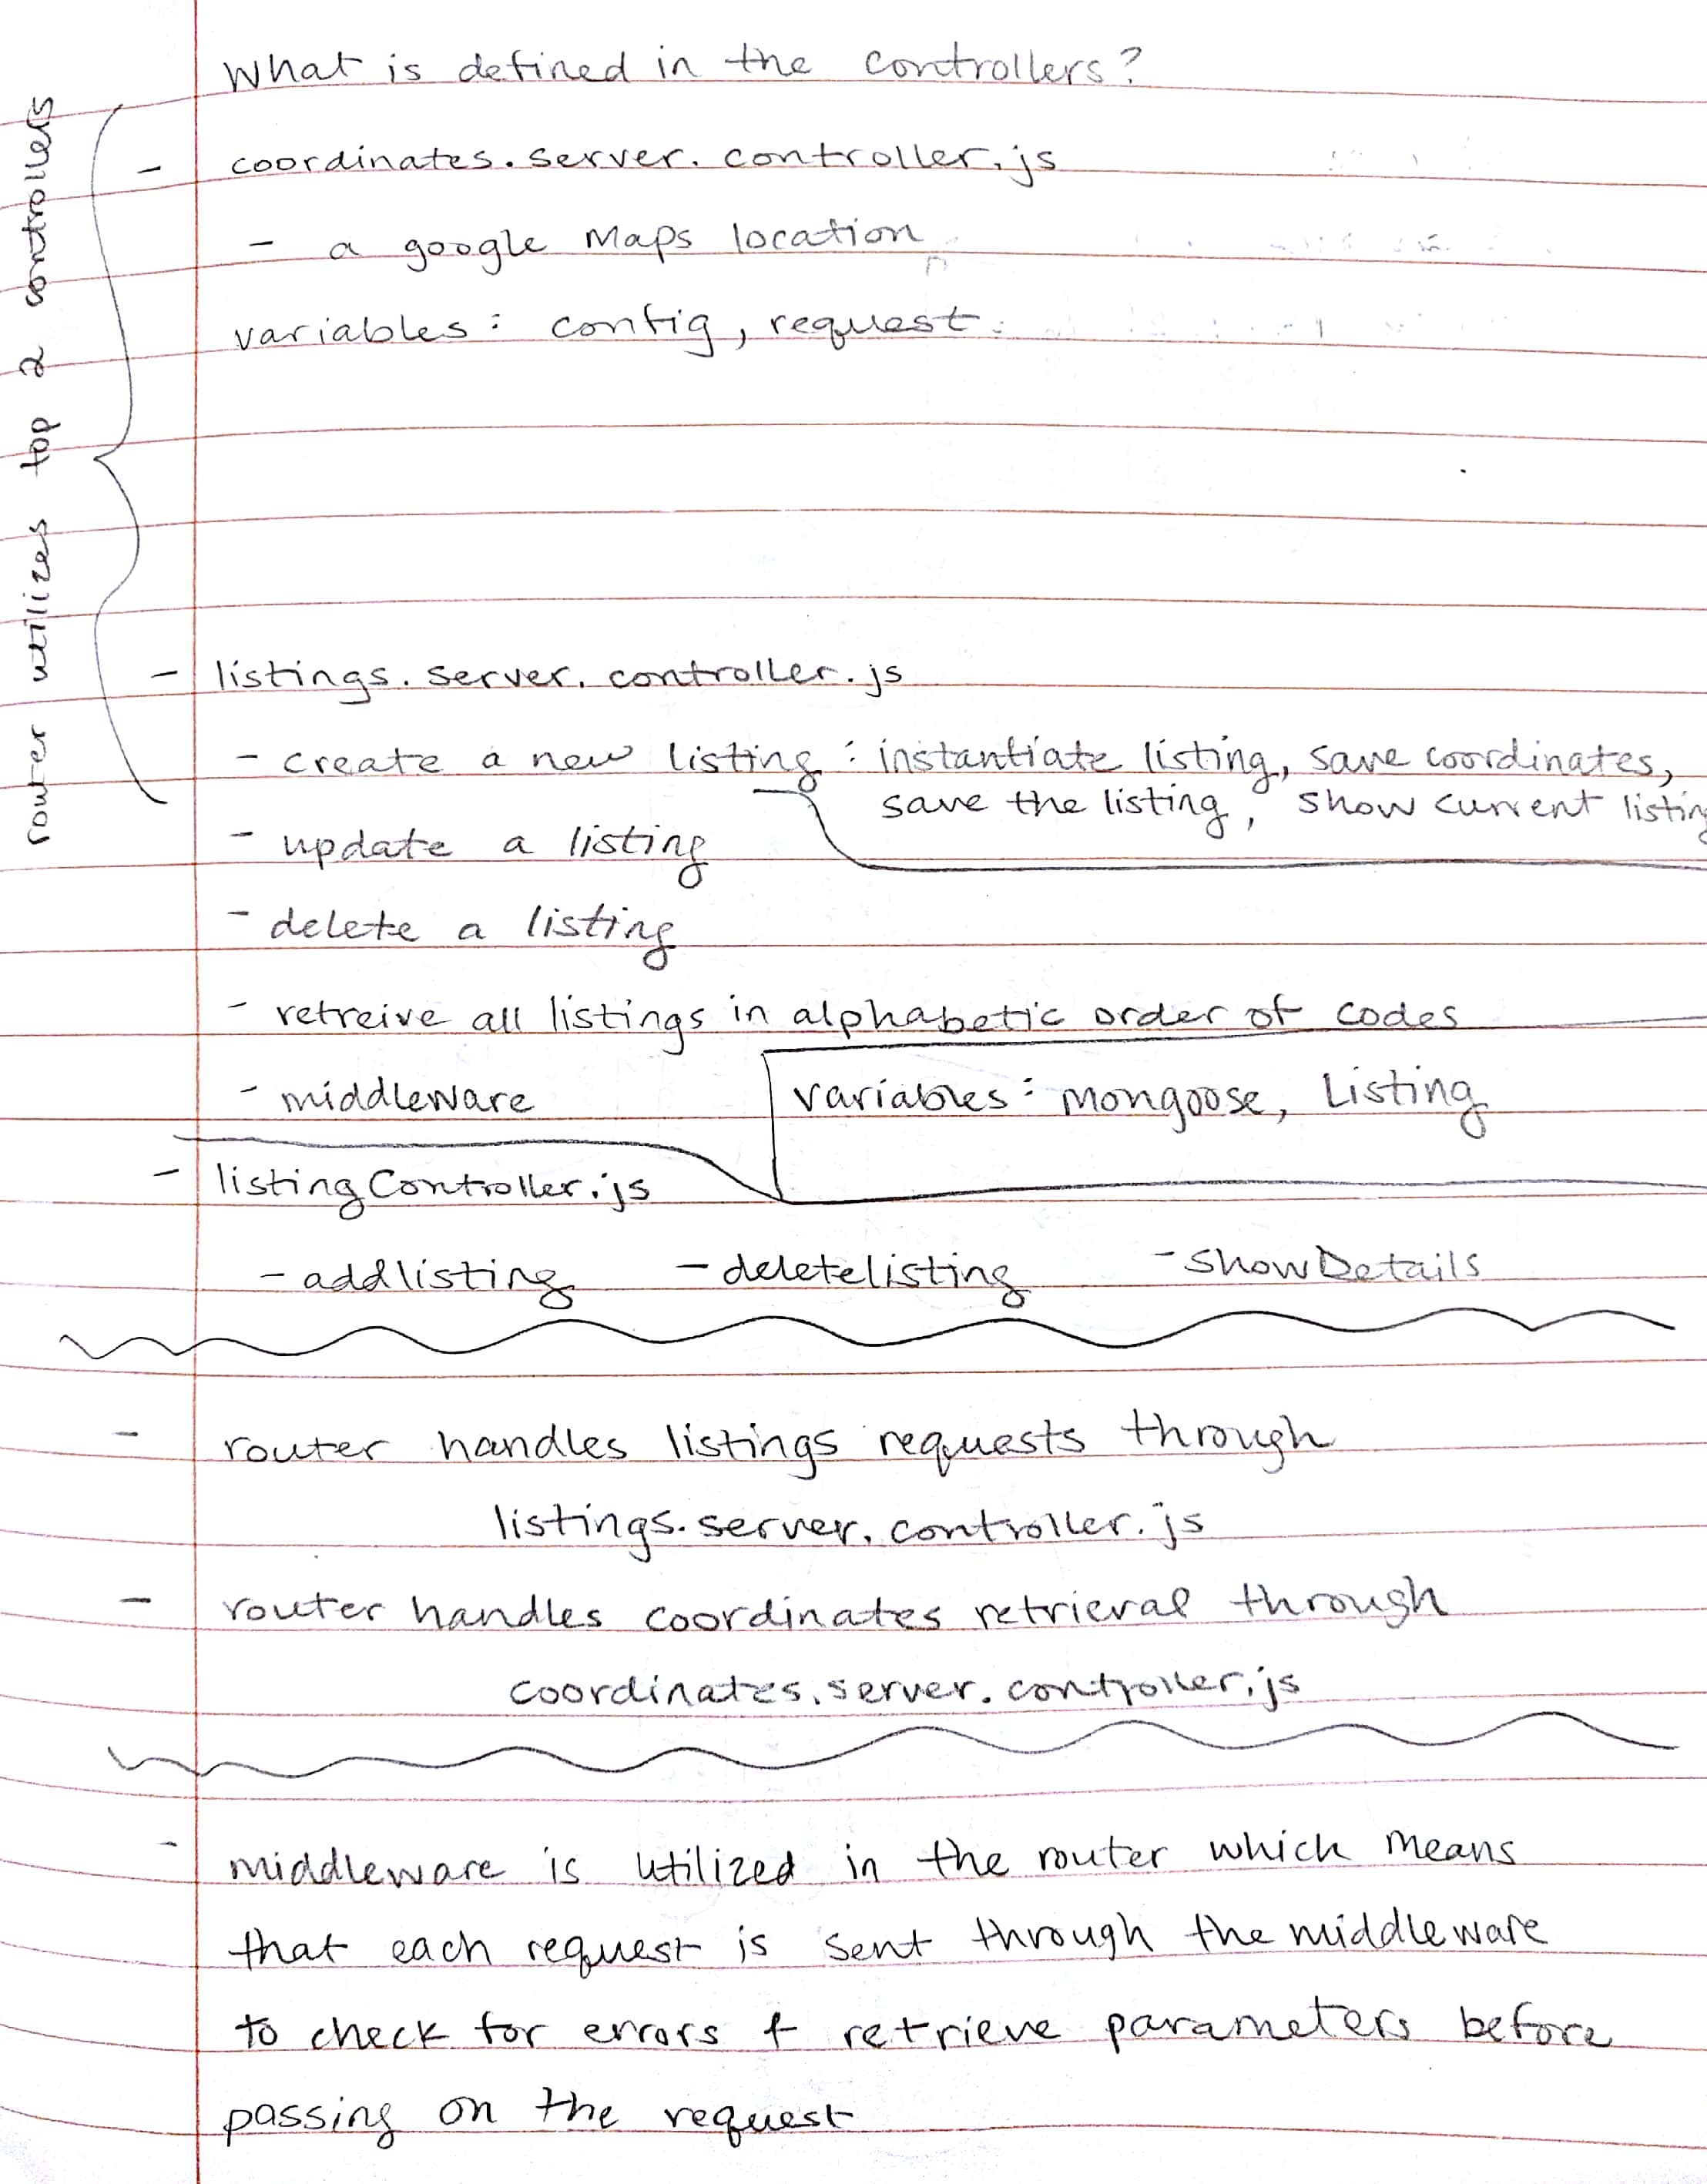 What is defined in the controllers?
router utilizes top 2 controllers
- coordinates.server.controller.js
- a google Maps location
variables: config, request
- listings.server.controller.js
- create a new listing: instantiate listing, save coordinates,
save the listing, show current listing
- update a listing
- delete a listing
- retreive all listings in alphabetic order of codes
- middleware
variables: mongoose, Listing
- listingController.js
- addlisting - deletelisting - showDetails
- router handles listings requests through
listings.server.controller.js
- router handles coordinates retrieval through
coordinates.server.controller.js
- middleware is utilized in the router which means
that each request is sent through the middleware
to check for errors + retrieve parameters before
passing on the request